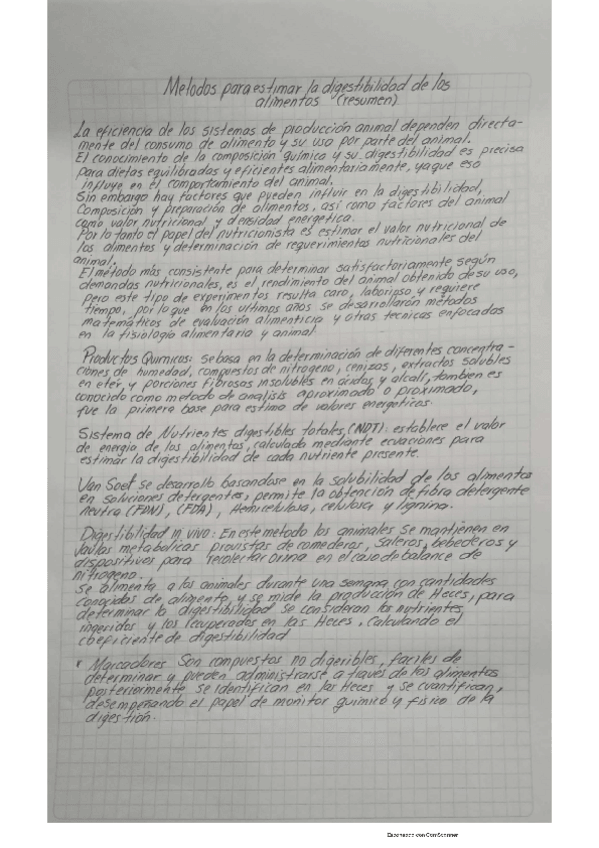 Metodos para estimar la digestibilidad de los
alimentos (resumen)
La eficiencia de los sistemas de producción animal dependen directa-
mente del consumo de alimento y su uso por parte del animal.
El conocimiento de la composición química y su digestibilidad es precisa
para dietas equilibradas y eficientes alimentariamente, ya que eso
influye en el comportamiento del animal.
Sin embargo hay factores que pueden influir en la digestibilidad,
Composición y preparación de alimentos, así como factores del animal
como valor nutricional y densidad energetica.
Por lo tanto el papel del nutricionista es estimar el valor nutricional de
los alimentos y determinación de requerimientos nutricionales del
animal.
El método más consistente para determinar satisfactoriamente según
demandas nutricionales, es el rendimiento del animal obtenido de su uso,
pero este tipo de experimentos resulta caro, laborioso y requiere
tiempo, por lo que en los ultimos años se desarrollarón métodos
matemáticos de evaluación alimenticia y otras tecnicas enfocadas
en la fisiología alimentaria y animal
Productos Quimicos: se basa en la determinación de diferentes concentra-
ciones de humedad, compuestos de nitrogeno, cenizas, extractos solubles
en eter y porciones fibrosas insolubles en ácidos y alcalí, tambien es
conocido como metodo de analisis aproximado o proximado,
fue la primera base para estima de valores energeticos.
Sistema de Nutrientes digestibles totales,(NDT): establece el valor
de energia de los alimentos, calculado mediante ecuaciones para
estimar la digestibilidad de cada nutriente presente.
Van Soet se desarrollo basandose en la solubilidad de los alimentos
en soluciones detergentes, permite la obtención de fibra detergente
neutra (FDN), (FDA), Hemicelulosa, celulosa y lignina.
Digestibilidad in vivo: En este metodo los animales se mantienen en
Jaulas metabolicas provistas de comederos, saleros, bebederos y
dispositivos para recolectar orina en el caso de balance de
nitrogeno.
Se alimenta a los animales durante una semana con cantidades
conocidas de alimento, y se mide la producción de Heces, para
determinar la digestibilidad se consideran los nutrientes
ingeridos y los recuperados en las Heces, calculando el
coeficiente de digestibilidad
Marcadores Son compuestos no digeribles, faciles de
determinar y pueden administrarse a traves de los alimentos
posteriormente se identifican en las Heces y se cuantifican,
desempeñando el papel de monitor químico y físico de la
digestión.
Escaneado con CamScanner